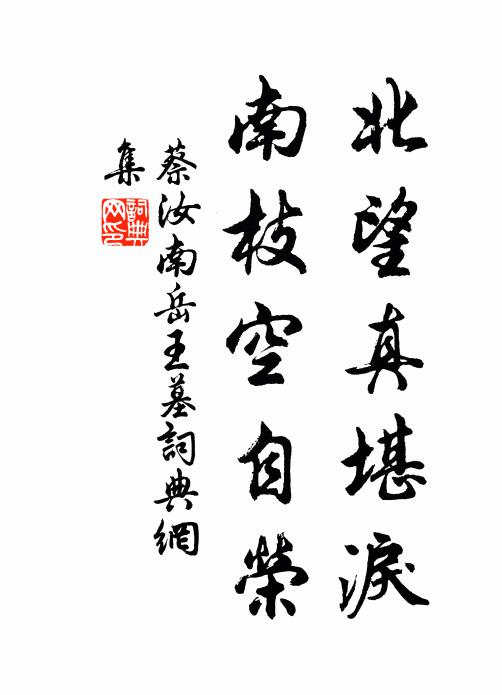 北望真堪淚
南枝空自榮
蔡汝南岳王墓詞典網
集
詞典網印